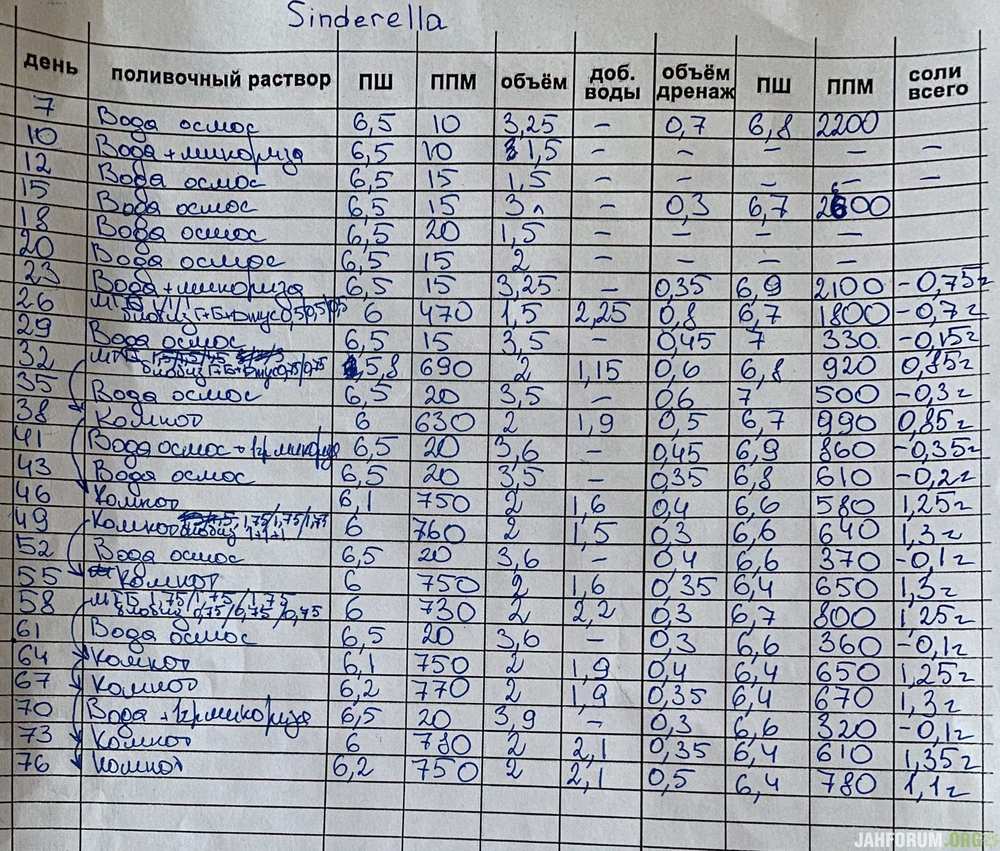 Sinderella
день поливочный раствор ПШ ППМ объём доб. воды объём дренаж ПШ ППМ соли всего
7 Вода осмос 6,5 10 3,25 – 0,7 6,8 2200
10 Вода + микориза 6,5 10 1,5 – – – – –
12 Вода осмос 6,5 15 1,5 – – – – –
15 Вода осмос 6,5 15 3л – 0,3 6,7 2600
18 Вода осмос 6,5 20 1,5 – – – –
20 Вода осмос 6,5 15 2 – – – –
23 Вода + микориза 6,5 15 3,25 – 0,35 6,9 2100 -0,75г
26 МГБ 1/1/1 биобиз Г+Б+Джус 0,5/0,5/0,5 6 470 1,5 2,25 0,8 6,7 1800 -0,7г
29 Вода осмос 6,5 15 3,5 – 0,45 7 330 -0,15г
32 МГБ биобиз Г+Б+Джус 0,75/0,75 5,8 690 2 1,15 0,6 6,8 920 0,85г
35 Вода осмос 6,5 20 3,5 – 0,6 7 500 -0,3г
38 Компот 6 630 2 1,9 0,5 6,7 990 0,85г
41 Вода осмос + 1гр микориза 6,5 20 3,6 – 0,45 6,9 860 -0,35г
43 Вода осмос 6,5 20 3,5 – 0,35 6,8 610 -0,2г
46 Компот 6,1 750 2 1,6 0,4 6,6 580 1,25г
49 Компот 1,75/1,75/1,75 биобиз 1+1+1 6 760 2 1,5 0,3 6,6 640 1,3г
52 Вода осмос 6,5 20 3,6 – 0,4 6,6 370 -0,1г
55 Компот 6 750 2 1,6 0,35 6,4 650 1,3г
58 МГБ 1,75/1,75/1,75 биобиз 0,75/0,75/0,75 6 730 2 2,2 0,3 6,7 800 1,25г
61 Вода осмос 6,5 20 3,6 – 0,3 6,6 360 -0,1г
64 Компот 6,1 750 2 1,9 0,4 6,4 650 1,25г
67 Компот 6,2 770 2 1,9 0,35 6,4 670 1,3г
70 Вода + 1гр микориза 6,5 20 3,9 – 0,3 6,6 320 -0,1г
73 Компот 6 780 2 2,1 0,35 6,4 610 1,35г
76 Компот 6,2 750 2 2,1 0,5 6,4 780 1,1г
JAHFORUM.ORG